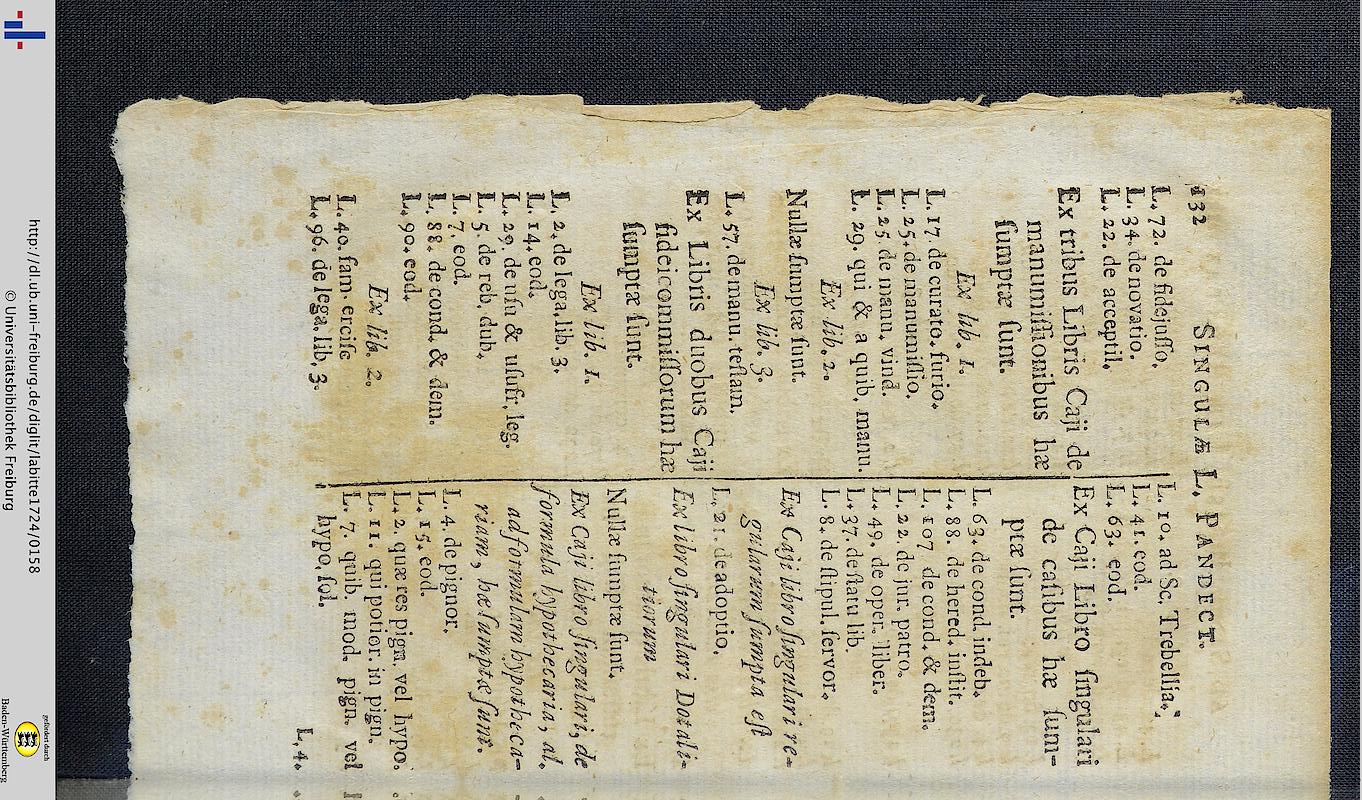 132 SINGULÆ L. PANDECT.
L. 72. de fidejusso.
L. 34. de novatio.
L. 22. de acceptil.
Ex tribus Libris Caji de
manumissionibus hæ
sumptæ sunt.
Ex lib. 1.
L. 17. de curato. furio.
L. 25. de manumissio.
L. 25 de manu. vind.
L. 29. qui & a quib. manu.
Ex lib. 2.
Nullæ sumptæ sunt.
Ex lib. 3.
L. 57. de manu. testam.
Ex Libris duobus Caji
fideicommissorum hæ
sumptæ sunt.
Ex lib. 1.
L. 2. de lega. lib. 3.
L. 14. eod.
L. 29. de usu & usufr. leg
L. 5. de reb. dub.
L. 7. eod.
L. 88. de cond. & dem.
L. 90. eod.
Ex lib. 2.
L. 40. fam. ercisc
L. 96. de lega. lib. 3.
L. 10. ad Sc. Trebellia.
L. 41. eod.
L. 63. eod.
Ex Caji Libro singulari
de casibus hæ sum-
ptæ sunt.
L. 63. de cond. indeb.
L. 88. de hered. instit.
L. 107. de cond. & dem.
L. 22. de jur. patro.
L. 49. de oper. liber.
L. 37. de statu lib.
L. 8. de stipul. servor.
Ex Caji libro singulari re-
gularum sumpta est
L. 21. de adoptio.
Ex libro singulari Dotali-
tiorum
Nullæ sumptæ sunt.
Ex Caji libro singulari, de
formula hypothecaria, al.
ad formulam hypotheca-
riam, hæ sumptæ sunt.
L. 4. de pignor.
L. 15. eod.
L. 2. quæ res pign. vel hypo.
L. 11. qui potior. in pign.
L. 7. quib. mod. pign. vel
hypo. sol.
L. 4.
http://dl.ub.uni-freiburg.de/diglit/labitte1724/0158
© Universitätsbibliothek Freiburg
gefördert durch
Baden-Württemberg